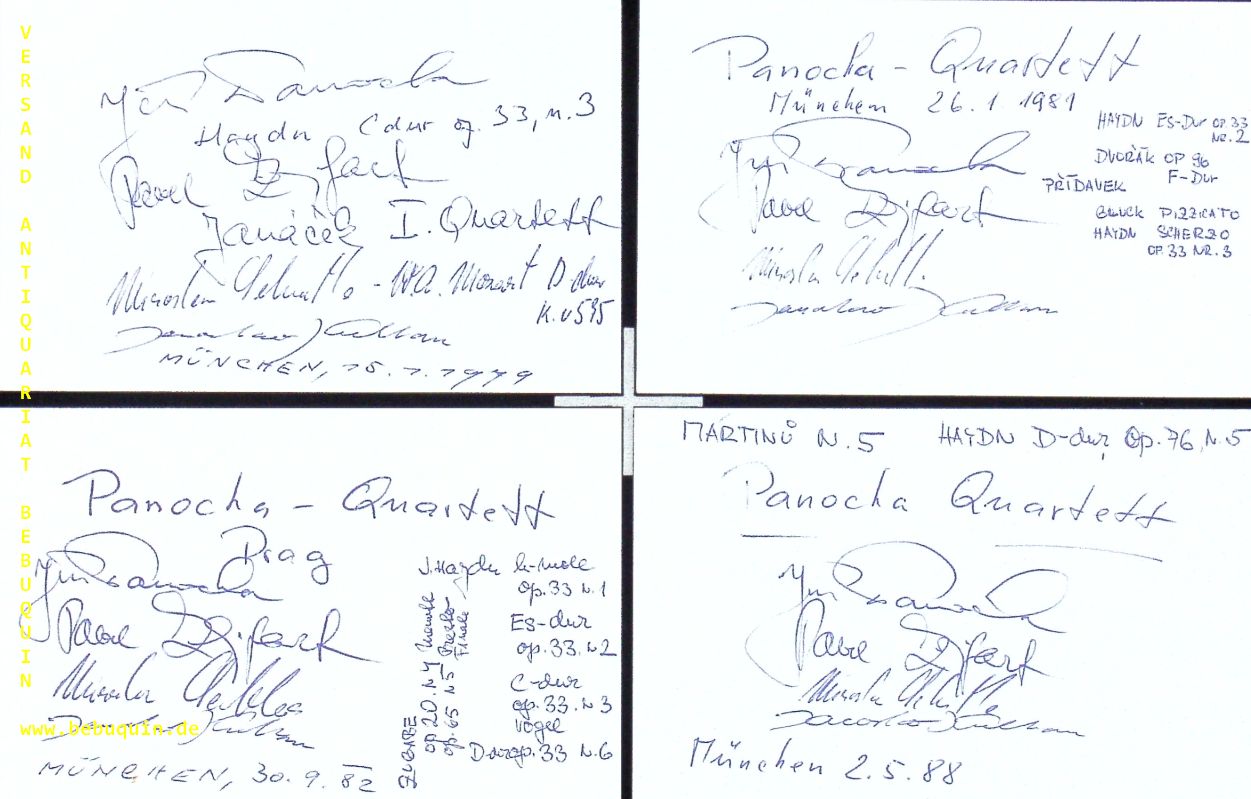 VERSAND ANTIQUARIAT BEBUQUIN
www.bebuquin.de
Jiří Panocha
Haydn C dur op. 33, n. 3
Pavel Zejfart
Janáček I. Quartett
Miroslav Sehnoutka - W.A. Mozart D-dur
K.v 595
Jaroslav Kulhan
MÜNCHEN, 15.1.1979
Panocha - Quartett
München 26.1.1981
HAYDN ES-DUR OP. 33
NR. 2
Jiří Panocha
DVOŘÁK OP 96
F-DUR
PŘÍDAVEK
Pavel Zejfart
GLUCK PIZZICATO
HAYDN SCHERZO
OP. 33 NR. 3
Miroslav Sehnoutka
Jaroslav Kulhan
Panocha - Quartett
Prag
Jiří Panocha
Pavel Zejfart
Miroslav Sehnoutka
Jaroslav Kulhan
MÜNCHEN, 30.9.82
J. Haydn h-moll
op. 33 N. 1
Es-dur
op. 33 N 2
C-dur
op. 33 N 3
Vogel
D dur op. 33 N. 6
ZUGABE
op 20 N 4 Menuett
op. 65 N 5 Presto
Finale
MARTINŮ N. 5 HAYDN D-dur, Op. 76, N. 5
Panocha Quartett
Jiří Panocha
Pavel Zejfart
Miroslav Sehnoutka
Jaroslav Kulhan
München 2.5.88